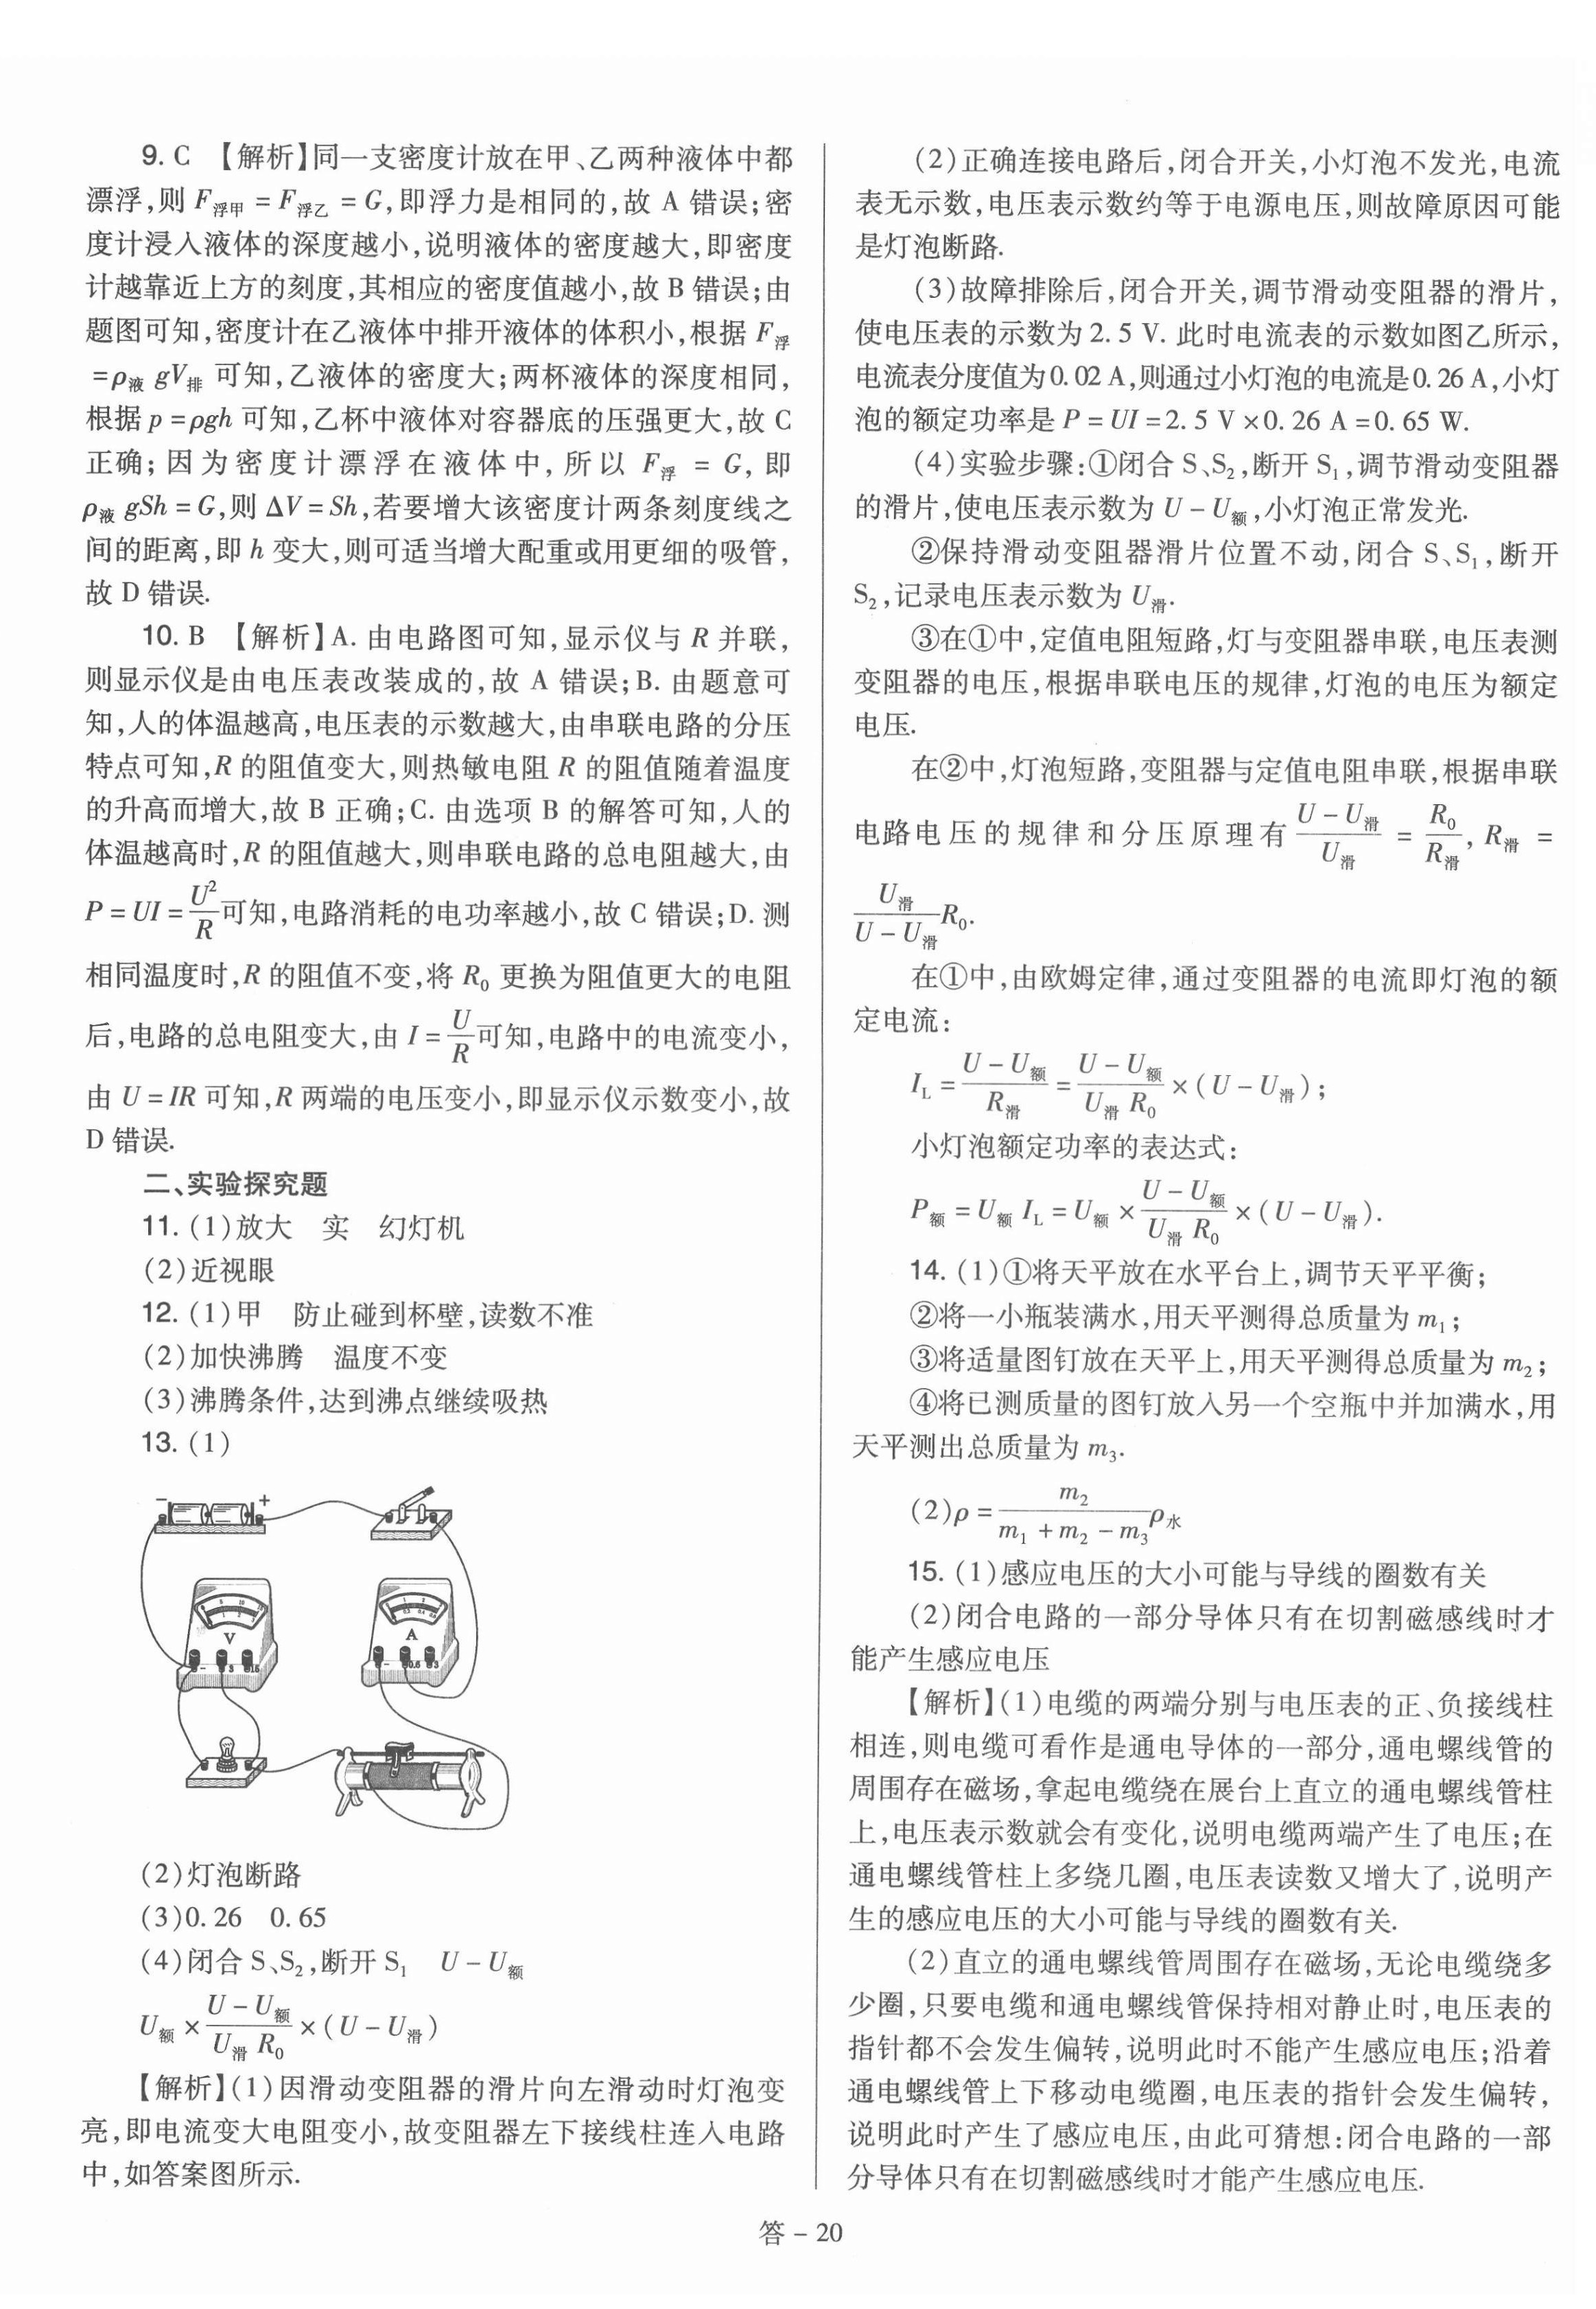 9. C 【解析】同一支密度计放在甲、乙两种液体中都
漂浮,则 F浮甲 = F浮乙 = G,即浮力是相同的,故 A 错误;密
度计浸入液体的深度越小,说明液体的密度越大,即密度
计越靠近上方的刻度,其相应的密度值越小,故 B 错误;由
题图可知,密度计在乙液体中排开液体的体积小,根据 F浮
=ρ液 gV排 可知,乙液体的密度大;两杯液体的深度相同,
根据 p =ρgh 可知,乙杯中液体对容器底的压强更大,故 C
正确;因为密度计漂浮在液体中,所以 F浮 = G,即
ρ液 gSh = G,则 ΔV = Sh,若要增大该密度计两条刻度线之
间的距离,即 h 变大,则可适当增大配重或用更细的吸管,
故 D 错误.
10. B 【解析】A. 由电路图可知,显示仪与 R 并联,
则显示仪是由电压表改装成的,故 A 错误;B. 由题意可
知,人的体温越高,电压表的示数越大,由串联电路的分压
特点可知,R 的阻值变大,则热敏电阻 R 的阻值随着温度
的升高而增大,故 B 正确;C. 由选项 B 的解答可知,人的
体温越高时,R 的阻值越大,则串联电路的总电阻越大,由
P = UI = U²/R 可知,电路消耗的电功率越小,故 C 错误;D. 测
相同温度时,R 的阻值不变,将 R₀ 更换为阻值更大的电阻
后,电路的总电阻变大,由 I = U/R 可知,电路中的电流变小,
由 U = IR 可知,R 两端的电压变小,即显示仪示数变小,故
D 错误.
二、实验探究题
11. (1)放大 实 幻灯机
(2)近视眼
12. (1)甲 防止碰到杯壁,读数不准
(2)加快沸腾 温度不变
(3)沸腾条件,达到沸点继续吸热
13. (1)
− +
V
- 3 15
A
- 0.6 3
(2)灯泡断路
(3)0. 26 0. 65
(4)闭合 S、S₂,断开 S₁ U − U额
U额 × (U − U额)/(U滑 R₀) × ( U − U滑 )
【解析】(1)因滑动变阻器的滑片向左滑动时灯泡变
亮,即电流变大电阻变小,故变阻器左下接线柱连入电路
中,如答案图所示.
(2)正确连接电路后,闭合开关,小灯泡不发光,电流
表无示数,电压表示数约等于电源电压,则故障原因可能
是灯泡断路.
(3)故障排除后,闭合开关,调节滑动变阻器的滑片,
使电压表的示数为 2. 5 V. 此时电流表的示数如图乙所示,
电流表分度值为0. 02 A,则通过小灯泡的电流是0. 26 A,小灯
泡的额定功率是 P = UI = 2. 5 V ×0. 26 A =0. 65 W.
(4)实验步骤:①闭合 S、S₂,断开 S₁,调节滑动变阻器
的滑片,使电压表示数为 U − U额,小灯泡正常发光.
②保持滑动变阻器滑片位置不动,闭合 S、S₁,断开
S₂,记录电压表示数为 U滑.
③在①中,定值电阻短路,灯与变阻器串联,电压表测
变阻器的电压,根据串联电压的规律,灯泡的电压为额定
电压.
在②中,灯泡短路,变阻器与定值电阻串联,根据串联
电路电压的规律和分压原理有 (U − U滑)/U滑 = R₀/R滑, R滑 =
U滑/(U − U滑) R₀.
在①中,由欧姆定律,通过变阻器的电流即灯泡的额
定电流:
I_L = (U − U额)/R滑 = (U − U额)/(U滑 R₀) × ( U − U滑 );
小灯泡额定功率的表达式:
P额 = U额 I_L = U额 × (U − U额)/(U滑 R₀) × ( U − U滑 ).
14. (1)①将天平放在水平台上,调节天平平衡;
②将一小瓶装满水,用天平测得总质量为 m₁;
③将适量图钉放在天平上,用天平测得总质量为 m₂;
④将已测质量的图钉放入另一个空瓶中并加满水,用
天平测出总质量为 m₃.
(2)ρ = m₂/(m₁ + m₂ − m₃) ρ水
15. (1)感应电压的大小可能与导线的圈数有关
(2)闭合电路的一部分导体只有在切割磁感线时才
能产生感应电压
【解析】(1)电缆的两端分别与电压表的正、负接线柱
相连,则电缆可看作是通电导体的一部分,通电螺线管的
周围存在磁场,拿起电缆绕在展台上直立的通电螺线管柱
上,电压表示数就会有变化,说明电缆两端产生了电压;在
通电螺线管柱上多绕几圈,电压表读数又增大了,说明产
生的感应电压的大小可能与导线的圈数有关.
(2)直立的通电螺线管周围存在磁场,无论电缆绕多
少圈,只要电缆和通电螺线管保持相对静止时,电压表的
指针都不会发生偏转,说明此时不能产生感应电压;沿着
通电螺线管上下移动电缆圈,电压表的指针会发生偏转,
说明此时产生了感应电压,由此可猜想:闭合电路的一部
分导体只有在切割磁感线时才能产生感应电压.
答 − 20